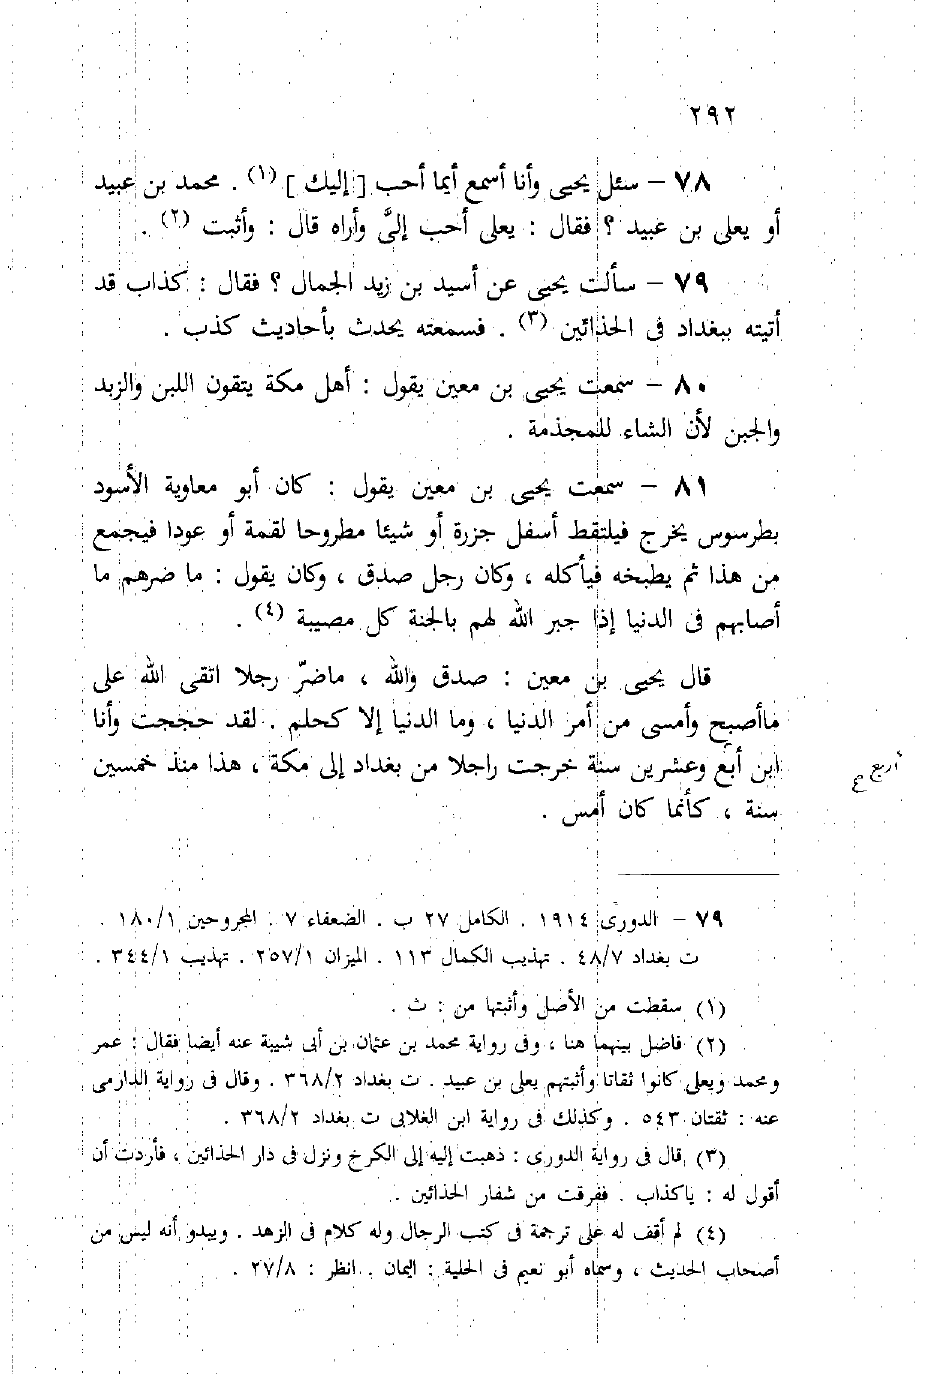 ٢٩٢
٧٨ – سئل يحيى وأنا أسمع أيما أحب [ إليك ] (١) . محمد بن عبيد
أو يعلى بن عبيد ؟ فقال : يعلى أحب إلىَّ وأراه قال : وأثبت (٢) .
٧٩ – سألت يحيى عن أسيد بن زيد الجمال ؟ فقال : كذاب قد
أتيته ببغداد فى الحذائين (٣) . فسمعته يحدث بأحاديث كذب .
٨٠ – سمعت يحيى بن معين يقول : أهل مكة يتقون اللبن والزبد
والجبن لأن الشاء للمجذمة .
٨١ – سمعت يحيى بن معين يقول : كان أبو معاوية الأسود
بطرسوس يخرج فيلتقط أسفل جزرة أو شيئا مطروحا لقمة أو عودا فيجمع
من هذا ثم يطبخه فيأكله ، وكان رجل صدق ، وكان يقول : ما ضرهم ما
أصابهم فى الدنيا إذا جبر الله لهم بالجنة كل مصيبة (٤) .
قال يحيى بن معين : صدق والله ، ماضرّ رجلا اتقى الله على
ماأصبح وأمسى من أمر الدنيا ، وما الدنيا إلا كحلم . لقد حججت وأنا
ابن أبع وعشرين سنة خرجت راجلا من بغداد إلى مكة ، هذا منذ خمسين
أربع
سنة ، كأنما كان أمس .
٧٩ – الدورى ١٩١٤ . الكامل ٢٧ ب . الضعفاء ٧ . المجروحين ١٨٠/١ .
ت بغداد ٤٨/٧ . تهذيب الكمال ١١٣ . الميزان ٢٥٧/١ . تهذيب ٣٤٤/١ .
(١) سقطت من الأصل وأثبتها من : ث .
(٢) فاضل بينهما هنا ، وفى رواية محمد بن عثمان بن أبى شيبة عنه أيضا فقال : عمر
ومحمد ويعلى كانوا ثقاتا وأثبتهم يعلى بن عبيد . ت بغداد ٣٦٨/٢ . وقال فى رواية الدارمى
عنه : ثقتان ٥٤٣ . وكذلك فى رواية ابن الغلابى ت بغداد ٣٦٨/٢ .
(٣) قال فى رواية الدورى : ذهبت إليه إلى الكرخ ونزل فى دار الحذائين ، فأردت أن
أقول له : ياكذاب . ففرقت من شفار الحذائين .
(٤) لم أقف له على ترجمة فى كتب الرجال وله كلام فى الزهد . ويبدو أنه ليس من
أصحاب الحديث ، وسماه أبو نعيم فى الحلية : اليمان . انظر : ٢٧/٨ .